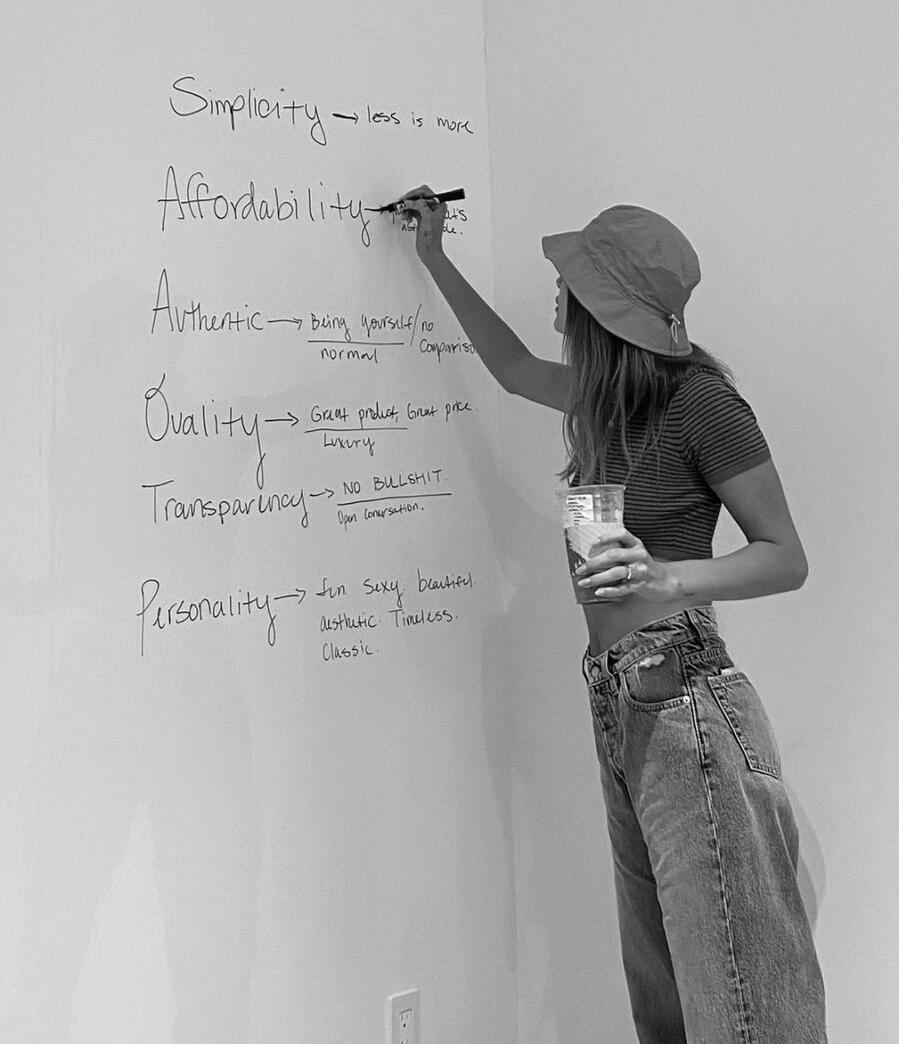 Simplicity → less is more
Affordability →
Authentic → Being yourself/no
normal
Quality → Great product, Great price.
Luxury
Transparency → NO BULLSHIT.
Open conversation.
Personality → fun. sexy. beautiful.
aesthetic. Timeless.
Classic.